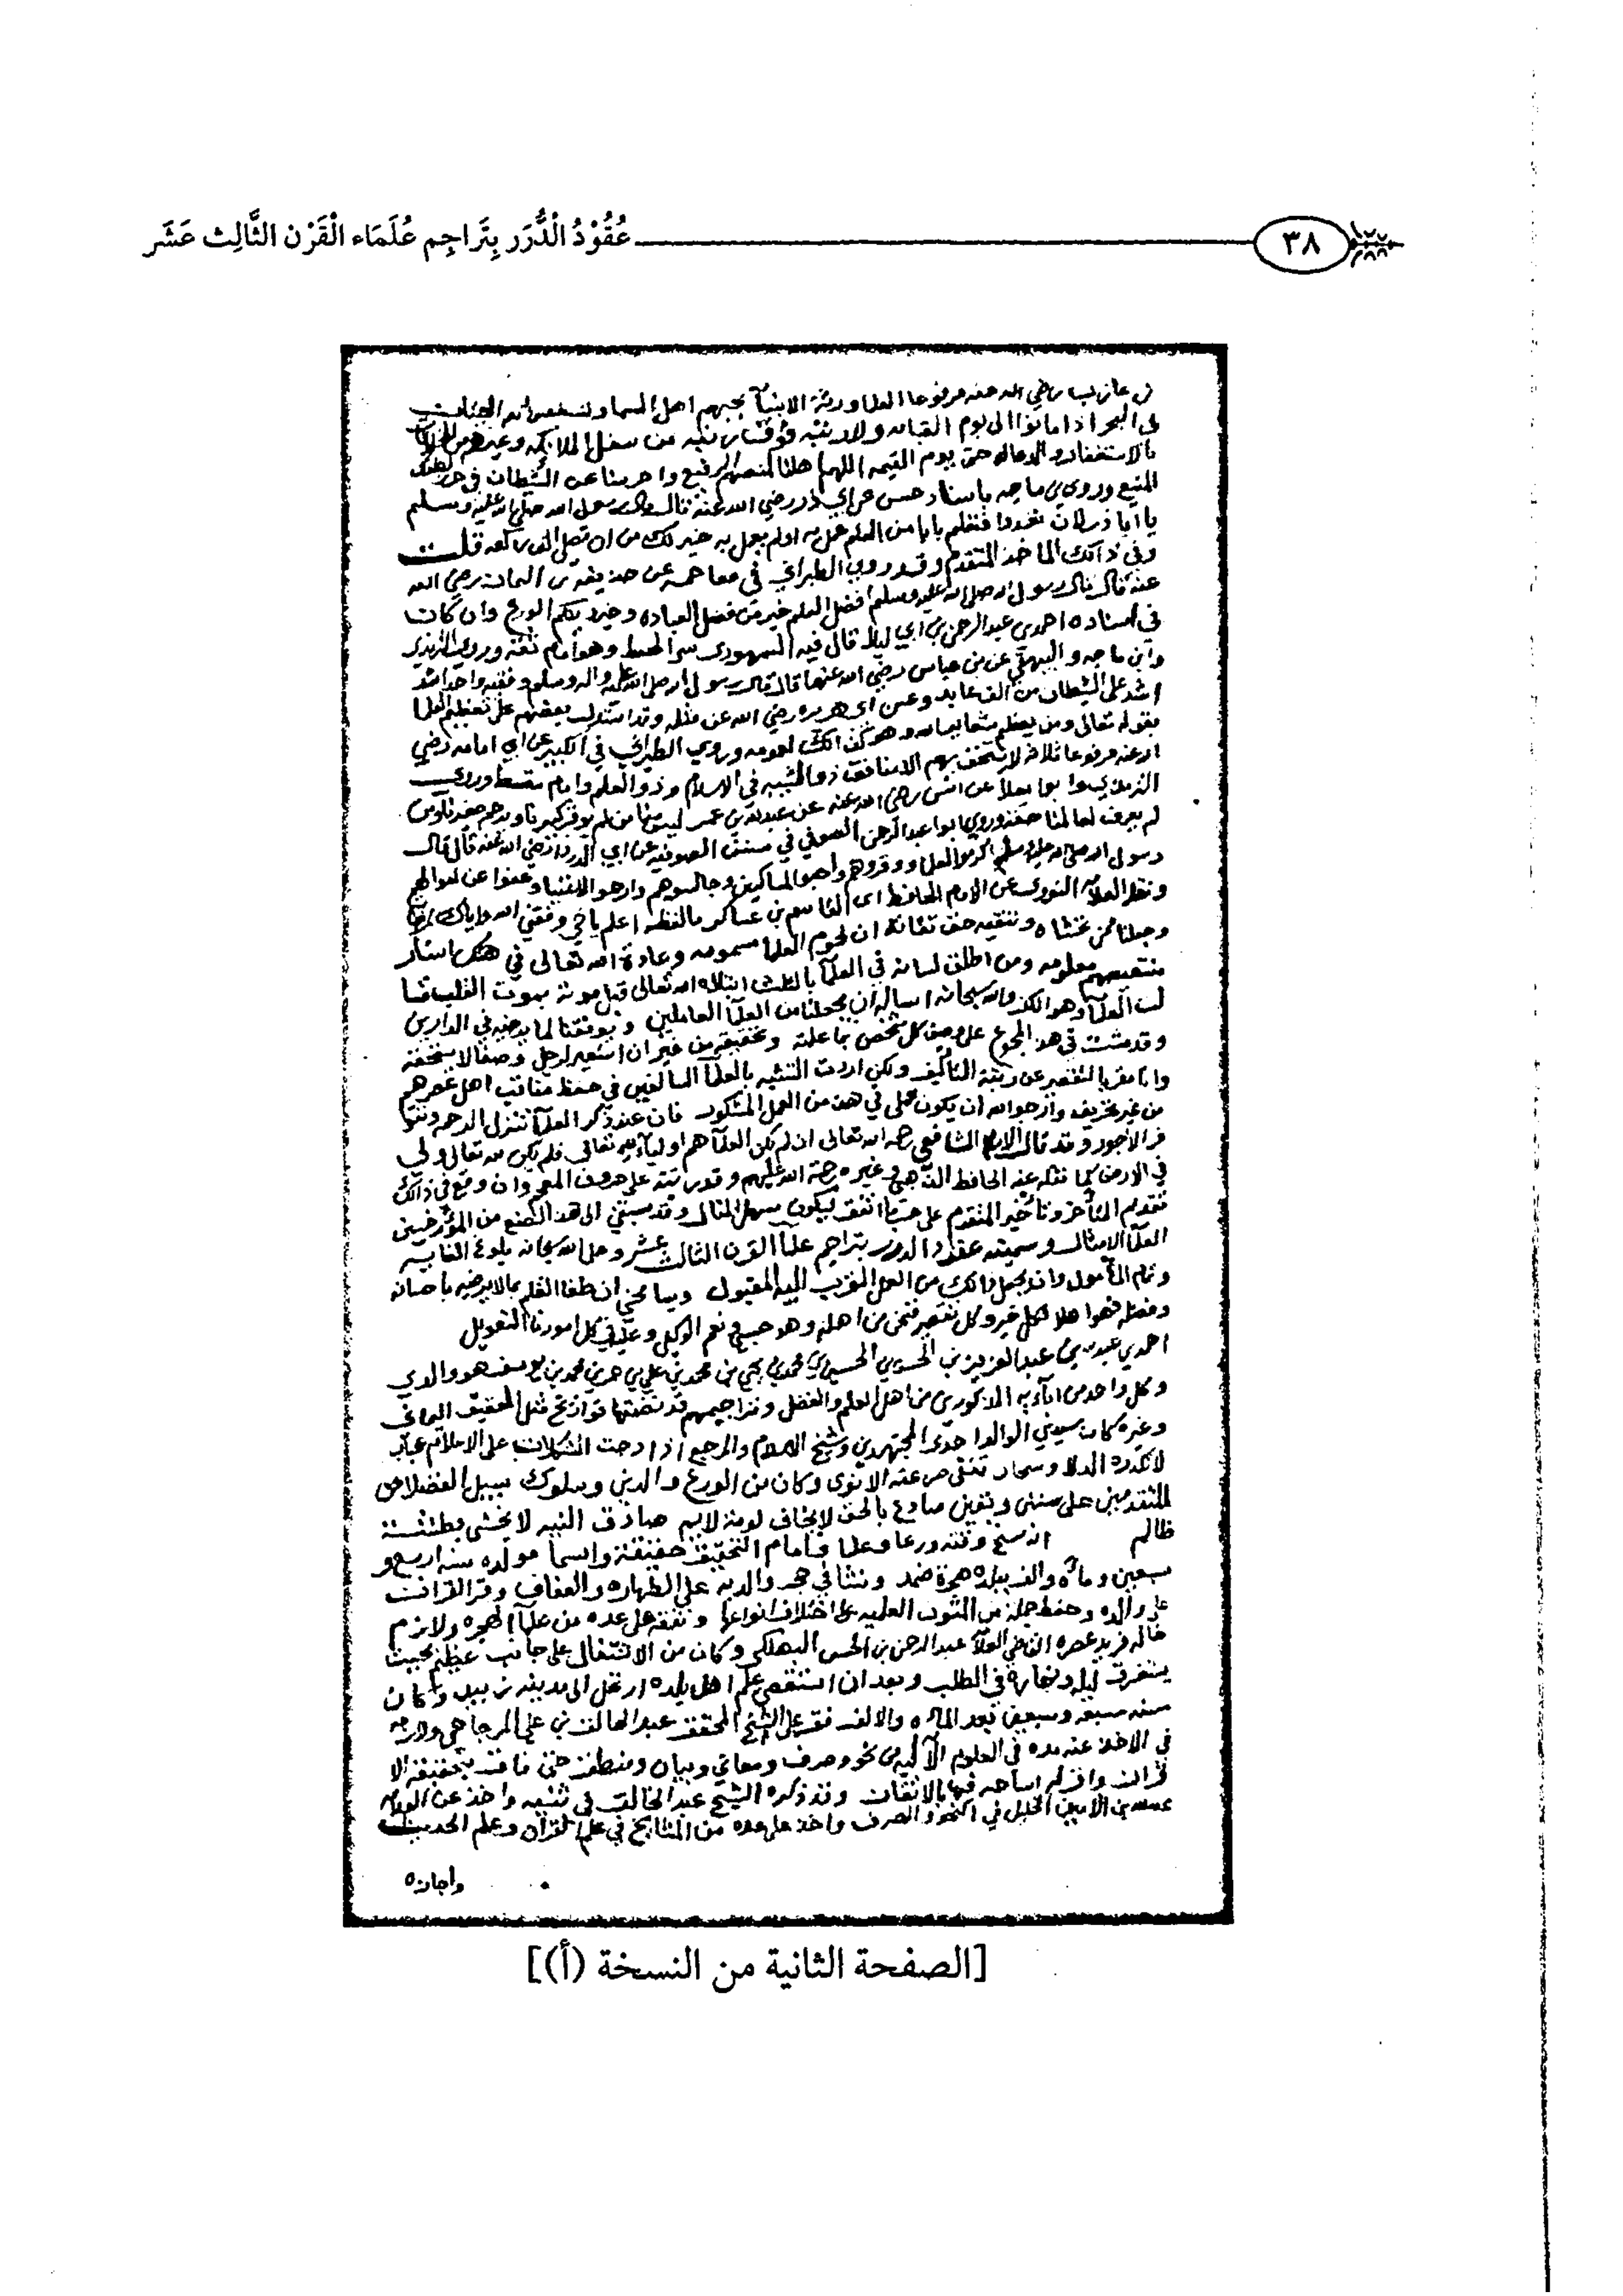 ٣٨ عُقُوْدُ الْدُّرَر بِتَرَاجِم عُلَمَاء الْقَرْن الثَّالِث عَشَر
بن عازب رضي الله عنه مرفوعا العلما ورثة الانبيآ يحبهم اهل السما وتستغفر لهم الحيتان
في البحر اذا ماتوا الى يوم القيامه ولا رتبه فوق رتبه من الملائكه وغيرهم
بالاستغفار والدعا له حتى يوم القيمه اللهم اهلنا لهذا المنصب الرفيع واحرسنا من الشيطان في حرزك
المنيع وروى بن ماجه باسناد حسن عن ابي ذر رضي الله عنه قال قال رسول الله صلى الله عليه وسلم
يا ابا ذر لان تغدوا فتعلم بابا من العلم عمل به او لم يعمل به خير لك من ان تصلي الف ركعه قلت
وفي ذالك الماخذ المتقدم وقد روى الطبراني في معاجمه عن حذيفة بن اليمان رضي الله
عنه قال قال رسول الله صلى الله عليه وسلم فضل العلم خير من فضل العباده وخير دينكم الورع وان كان
في اسناده احمد بن عبد الرحمن بن ابي ليلا قال فيه السمهودى وهو امام ثقه وروى الترمذي
وابن ماجه والبيهقي عن بن عباس رضي الله عنهما قال قال رسول الله صلى الله عليه واله وسلم فقيه واحد اشد
اشد على الشيطان من الف عابد وعن ابي هريره رضي الله عن مثله وقد استدل بعضهم على تعظيم العلما
بقوله تعالى ومن يعظم شعاير الله وهو كذالك لعمومه وروى الطبراني في الكبير عن ابي امامه رضي
الله عنه مرفوعا ثلاثه لا يستخف بهم الا منافق ذو الشيبه في الاسلام وذو العلم وامام مقسط وروى
الترمذي وابو يعلا عن انس رضي الله عنه عن عبد الله بن عمر ليس منا من لم يوقر كبيرنا ويرحم صغيرنا ومن
لم يعرف لعالمنا حقه وروى ابو عبد الرحمن الصوفي في سنن الصوفيه عن ابي الدرداء رضي الله عنه قال قال
رسول الله صلى الله عليه وسلم اكرموا العلما ووقروهم واحبوا المساكين وجالسوهم وارحموا الاغنيا وعفوا عن اموالهم
ونقل العلامه النووى عن الامام الحافظ ابي القاسم بن عساكر مالفظه اعلم يا اخي وفقني الله واياك لمرضاته
وجعلنا ممن يخشاه ويتقيه حق تقاته ان لحوم العلما مسمومه وعادة الله تعالى في هتك استار
منتقصهم معلومه ومن اطلق لسانه في العلمآ بالثلب ابتلاه الله تعالى قبل موته بموت القلب
والله سبحانه اساله ان يجعلنا من العلمآ العاملين ويوفقنا لما يرضيه في الدارين
وقد مشيت في هذ المجموع على وصف كل شخص بما علمته وتحققته من غير ان استعير لرجل وصفا لا يستحقه
وانا مقر بالتقصير عن رتبة التاليف ولكن اردت التشبه بالعلمآ السالفين في حفظ مناقب اهل عصرهم
من غير تحريف وارجوا الله ان يكون عملي في هذه من العمل المشكور فان عند ذكر العلمآ تتنزل الرحمه وتتوا
فر الاجور وقد قال الامام الشافعي رحمه الله تعالى ان لم يكن العلمآ هم اوليآء الله تعالى فلم يكن لله تعالى ولي
في الارض كما نقله عنه الحافظ الذهبي وغيره رحمة الله عليهم وقد رتبته على حروف المعجم وان وقع في ذالك
تقديم المتأخر وتأخير المتقدم على حسب ما اتفق ليكون سهل المنال وقد سبقني الى هذا الصنع من المؤرخين
العلمآ الامثال وسميته عقود الدرر بتراجم علما القرن الثالث عشر وعلى الله سبحانه بلوغ الغايه
وتمام المأمول وان يجعل ذالك من العمل المقرب اليه المقبول ويسامحني ان طغا القلم بما لا يرضيه باحسانه
وفضله فهو اهلا لكل خير وكل تقصير فنحن من اهله وهو حسبي ونعم الوكيل وعليه في كل امورنا التعويل
احمد بن عبد الله بن عبد العزيز بن محمد بن علي بن محمد بن يوسف هو والدي
وكل واحد من ابآءيه المذكورين من اهل العلم والفضل وتراجيمهم قد تضمنتها تواريخ مثل العقيق اليماني
وغيره كان سيدي الوالد احد المجتهدين وشيخ الاسلام والمرجع اذا دجت المشكلات على الاعلام عباب
لا تكدره الدلا وكان من الورع والدين وسلوك سبيل الفضلا من
المتقدمين على سنن ويقين صادع بالحق لا يخاف لومة لايم صادق النيه لا يخشى بطشة
ظالم ورعا وعلما وامام التحقيق حقيقة واسما مولده سنه اربع و
سبعين ومائه والف ببلده هجرة ضمد ونشا في حجر والديه على الطهاره والعفاف وقرا القران
على والده وحفظ جملة من المتون العلميه على اختلاف انواعها وتفقه على عده من علمآ الهجره ولازم
خاله فريد عصره القاضي العلامه عبد الرحمن بن الحسن البهكلي وكان من الاشتغال على جانب عظيم بحيث
يستغرق ليله ونهاره في الطلب وبعد ان استقصى علم اهل بلده ارتحل الى مدينة زبيد وكان
سنه سبعه وسبعين بعد المائه والالف فقرا على الشيخ المحقق عبد الخالق بن علي المزجاجي ولازمه
في الاخذ عنه مده في العلوم الآليه من نحو وصرف ومعاني وبيان ومنطق حتى فاق بتحقيقه الا
قران واقر له اساتذته فيها بالاتقان وقد ذكره الشيخ عبد الخالق في ثبته واخذ عن العلامه
بن الامين في النحو والصرف واخذ على عده من المشايخ في علم القران وعلم الحديث
واجازه
[الصفحة الثانية من النسخة (أ)]